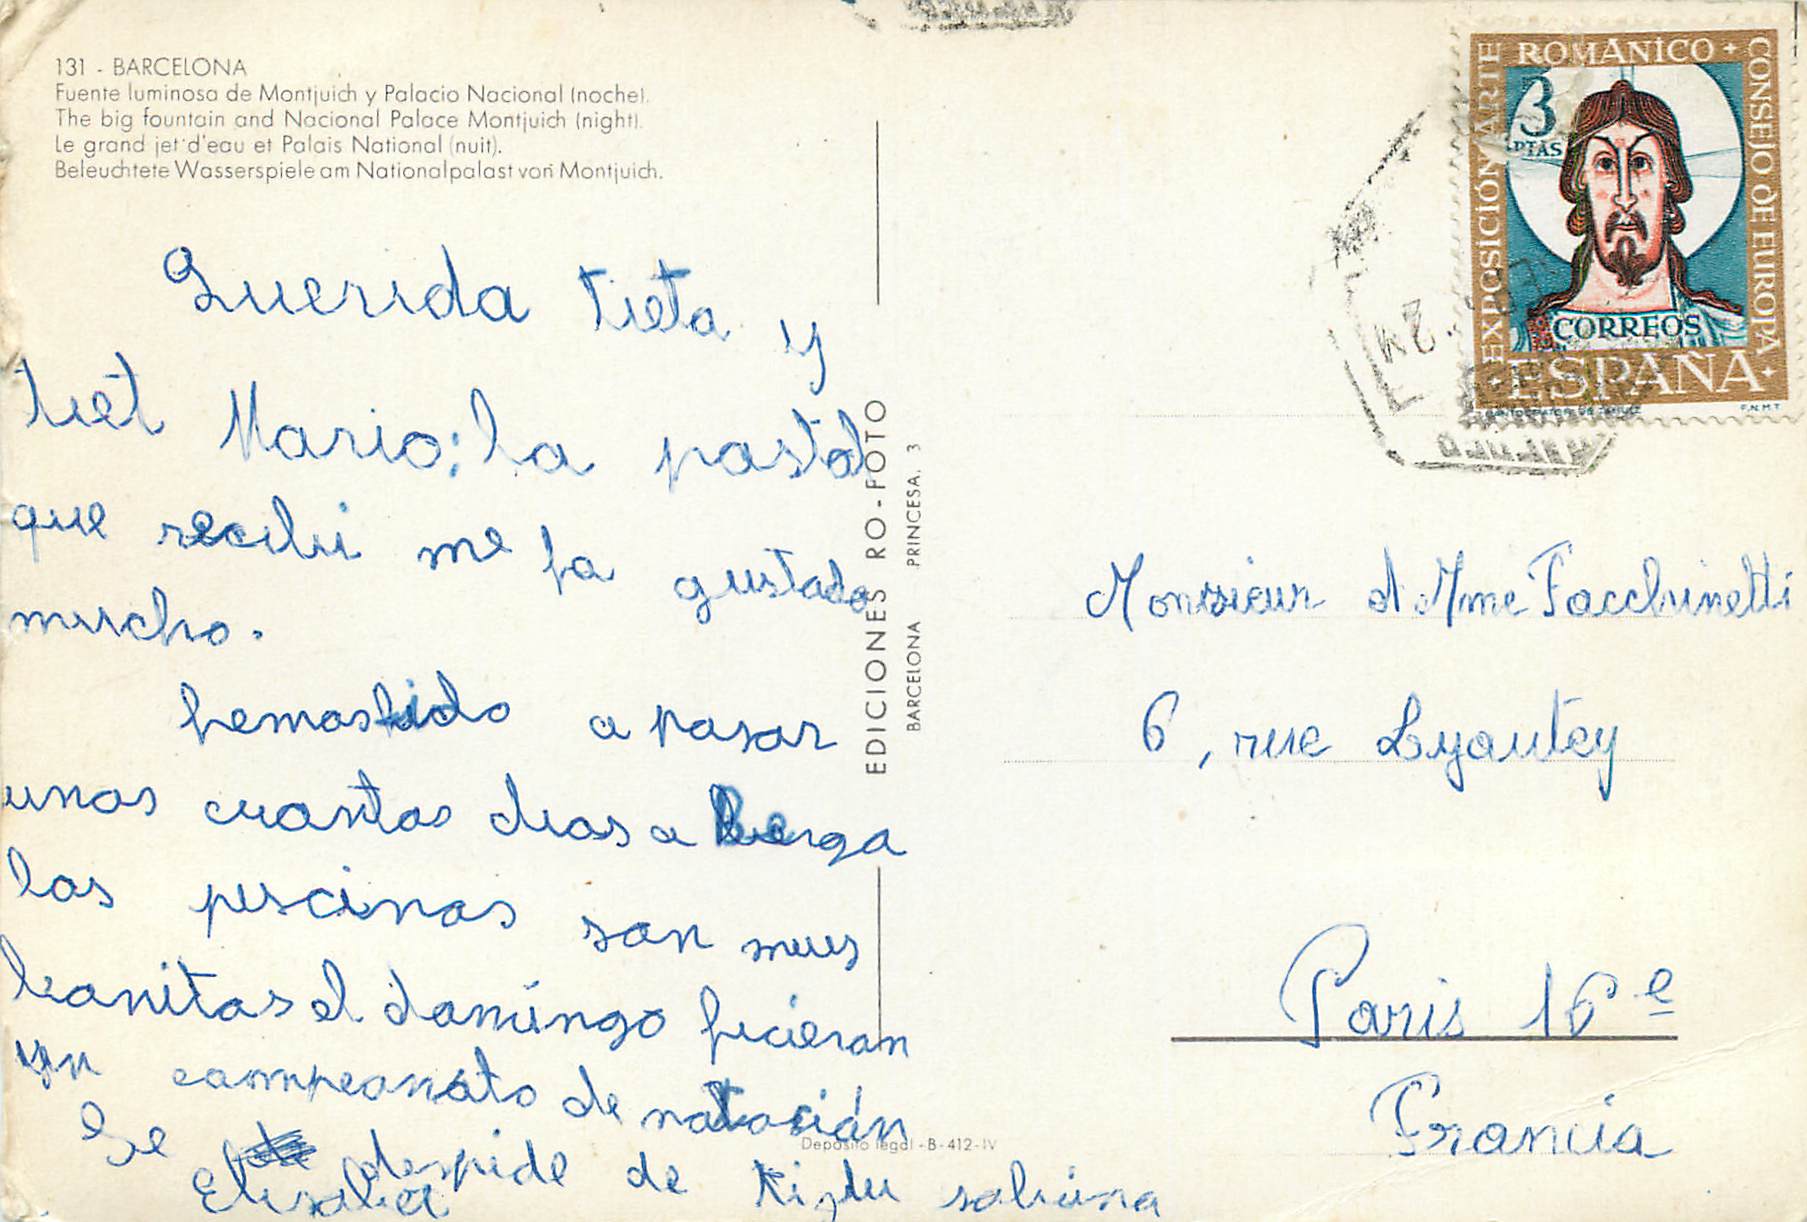 131 - BARCELONA
Fuente luminosa de Montjuich y Palacio Nacional (noche).
The big fountain and Nacional Palace Montjuich (night).
Le grand jet d'eau et Palais National (nuit).
Beleuchtete Wasserspiele am Nationalpalast von Montjuich.
Querida tieta y
tiet Mario: la postal
que recibi me ha gustado
mucho.
hemos ido a pasar
unos cuantos dias a Berga
las piscinas son muy
bonitas el domingo hicieron
un campeonato de natación
Se despide de ti tu sobrina
Elisabet
EDICIONES RO - FOTO
BARCELONA PRINCESA, 3
Depósito legal - B-412-IV
EXPOSICIÓN ARTE ROMÁNICO + CONSEJO DE EUROPA +
3
PTAS
CORREOS
ESPAÑA
F.N.M.T
Monsieur et Mme Facchinetti
6, rue Lyautey
Paris 16e
Francia